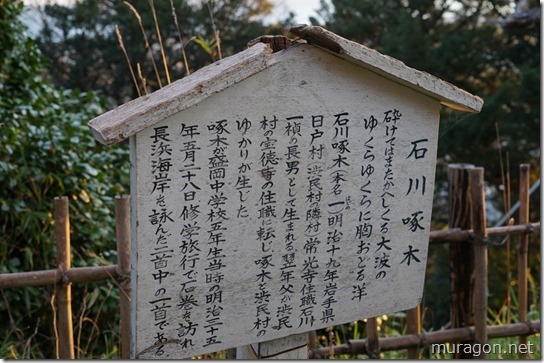 石川啄木
砕けてはまたかへしくる大波の
ゆくらゆくらに胸おどる洋
石川啄木(本名 一)明治十九年岩手県
日戸村(渋民村の隣村)常光寺住職石川
一禎の長男として生まれる 翌年父が渋民
村の宝徳寺の住職に転じ、啄木と渋民村の
ゆかりが生じた。
啄木が盛岡中学校五年生当時の明治三十五
年五月二十八日修学旅行で石巻を訪れ
長浜海岸を詠んだ二首中の一首である
muragon.net